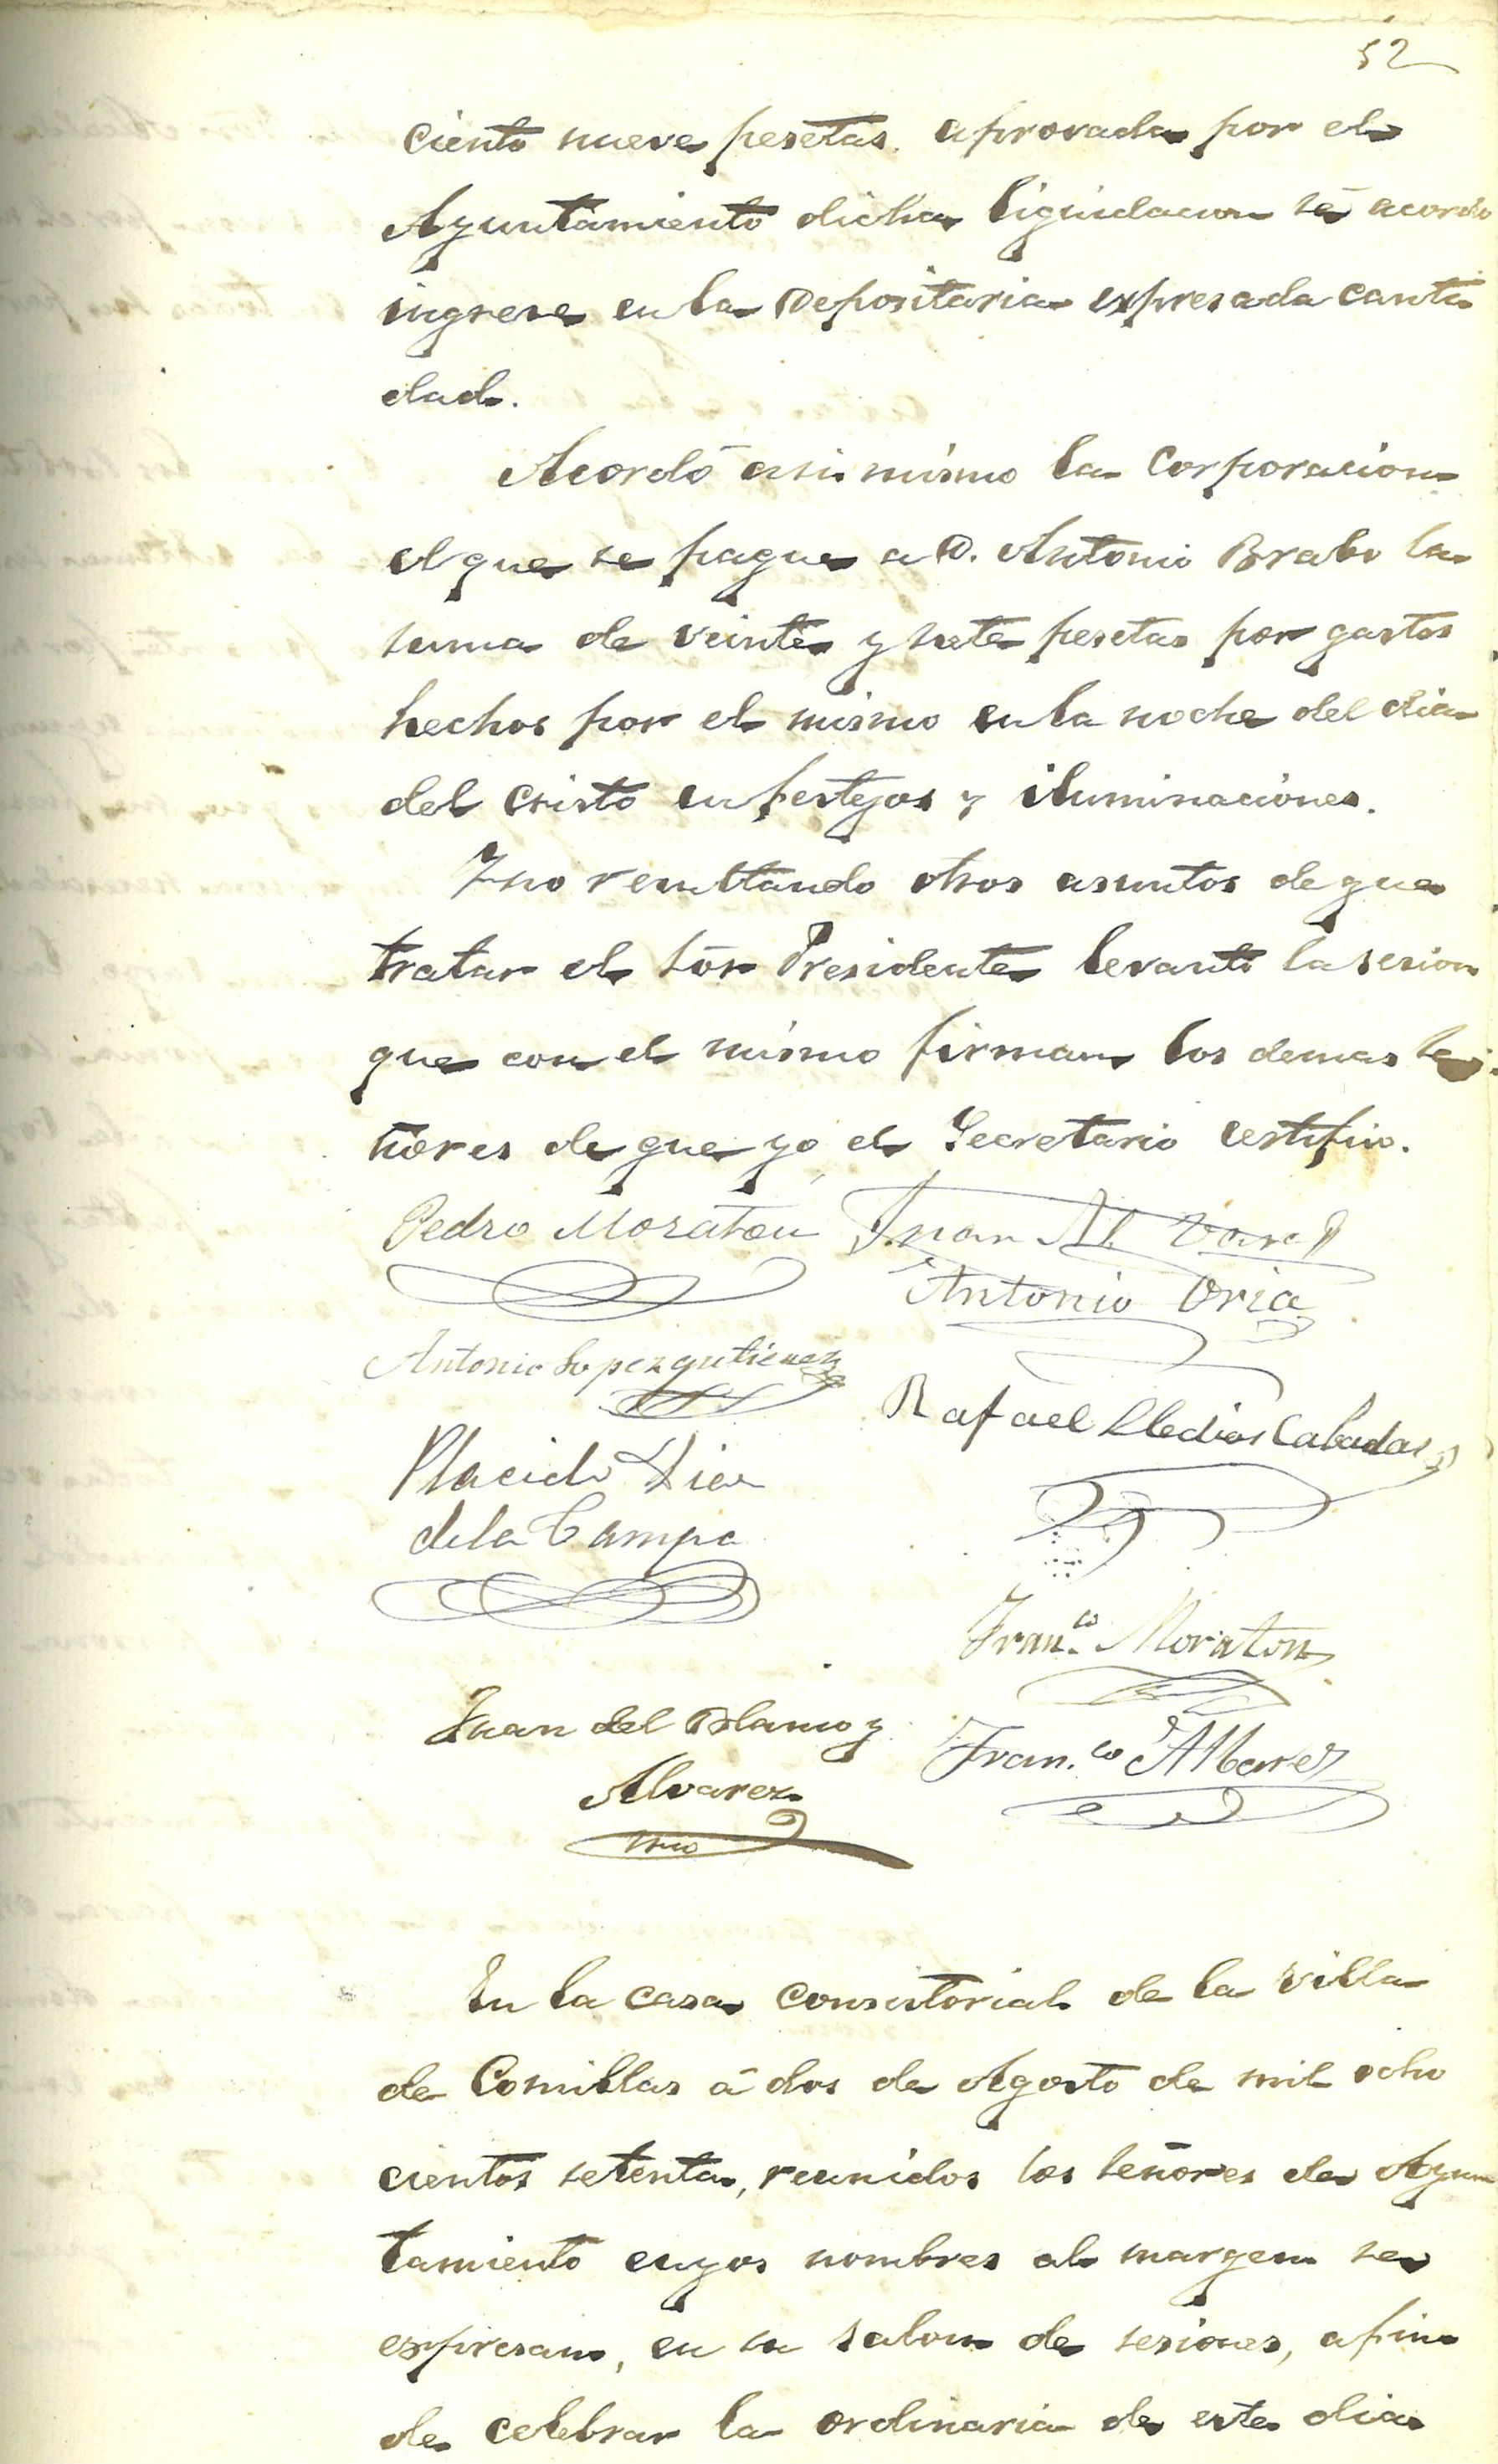 52
ciento nueve pesetas. aprovada por el
Ayuntamiento dicha liquidacion se acordo
ingrese en la Depositaria expresada canti
dad.
Acordó asi mismo la Corporacion
el que se pague a D. Antonio Brabo la
suma de veinte y siete pesetas por gastos
hechos por el mismo en la noche del dia
del Cristo en festejos y iluminaciones.
Y no resultando otros asuntos de que
tratar el Sór Presidente levantó la sesion
que con el mismo firman los demas se
ñores de que yo el Secretario certifico.
Pedro Moraton Juan Al
Antonio Oria
Antonio Lopez gutierrez
Rafael Cabadas
Placido Diaz
de la Campa
Fran.co Moraton
Juan del Blanco y
Fran.co Albarez
Alvarez
Srio
En la casa consistorial de la villa
de Comillas á dos de Agosto de mil ocho
cientos setenta, reunidos los señores de Ayun
tamiento cuyos nombres al margen se
expresan, en su salon de sesiones, a fin
de celebrar la ordinaria de este dia